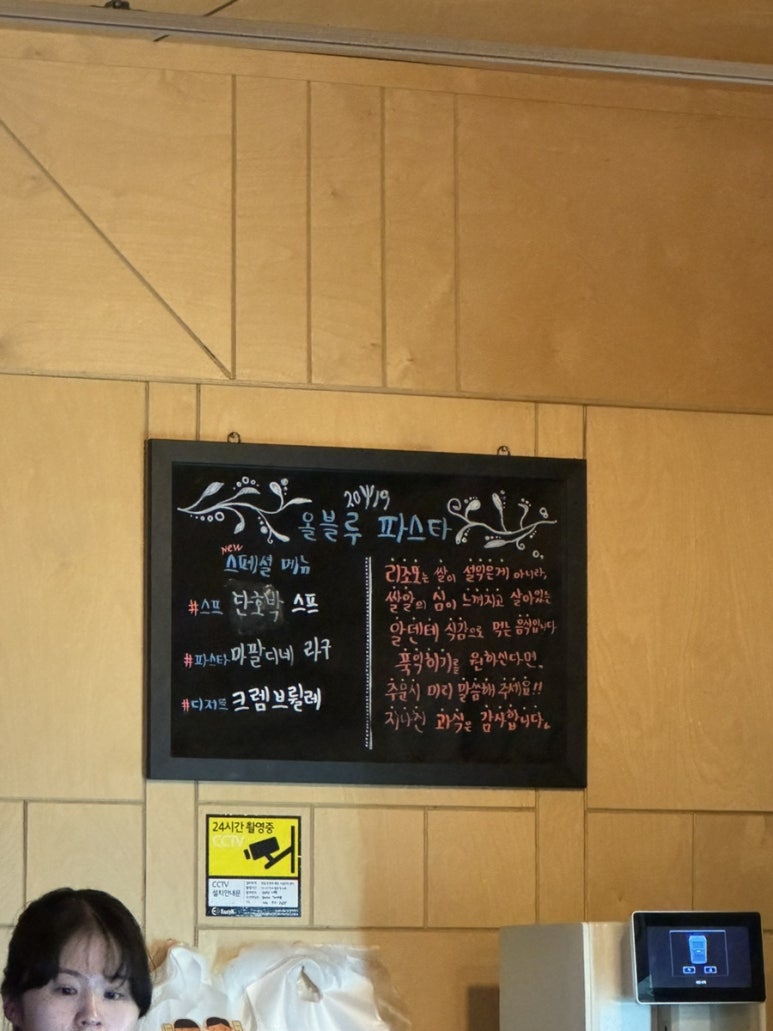 올블루 파스타
new
스페셜 메뉴
#스프 단호박 스프
#파스타 마팔디네 라구
#디저트 크렘브륄레
리조또는 쌀이 설익은게 아니라,
쌀알의 심이 느껴지고 살아있는
알덴테 식감으로 먹는 음식입니다
푹익히기를 원하신다면,
주문시 미리 말씀해 주세요!!
지나친 과식은 감사합니다.
24시간 촬영중
CCTV
CCTV
설치안내문